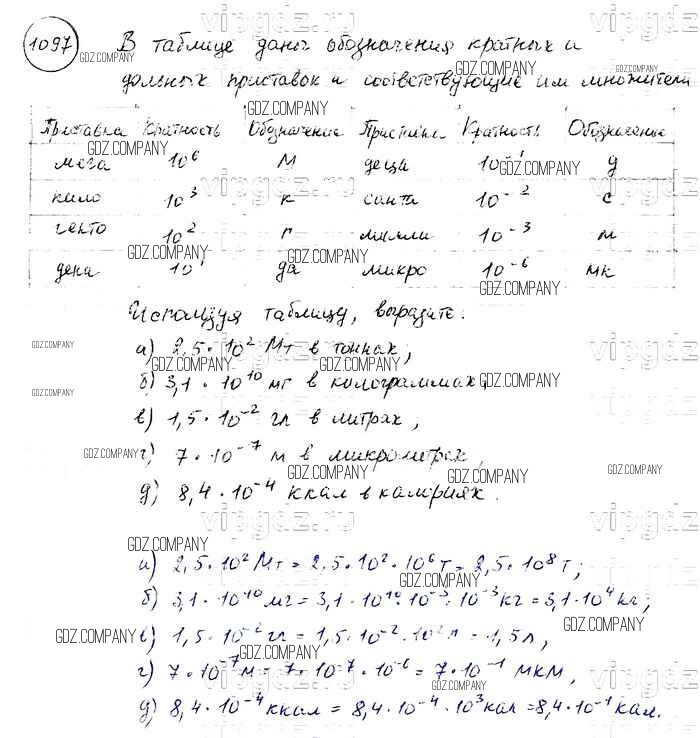 1097 В таблице даны обозначения кратных и
дольных приставок и соответствующие им множители
Приставка Кратность Обозначение Приставка Кратность Обозначение
мега 10⁶ М деци 10⁻¹ д
кило 10³ к санти 10⁻² с
гекто 10² г милли 10⁻³ м
дека 10¹ да микро 10⁻⁶ мк
Используя таблицу, выразите:
а) 2,5 · 10² Мт в тоннах;
б) 3,1 · 10¹⁰ мг в килограммах;
в) 1,5 · 10⁻² гл в литрах,
г) 7 · 10⁻⁷ м в микрометрах,
д) 8,4 · 10⁻⁴ ккал в калориях.
а) 2,5 · 10² Мт = 2,5 · 10² · 10⁶ т = 2,5 · 10⁸ т;
б) 3,1 · 10¹⁰ мг = 3,1 · 10¹⁰ · 10⁻³ · 10⁻³ кг = 3,1 · 10⁴ кг;
в) 1,5 · 10⁻² гл = 1,5 · 10⁻² · 10² л = 1,5 л,
г) 7 · 10⁻⁷ м = 7 · 10⁻⁷ · 10⁻⁶ = 7 · 10⁻¹ мкм,
д) 8,4 · 10⁻⁴ ккал = 8,4 · 10⁻⁴ · 10³ кал = 8,4 · 10⁻¹ кал.
GDZ.COMPANY
vipgdz.ru